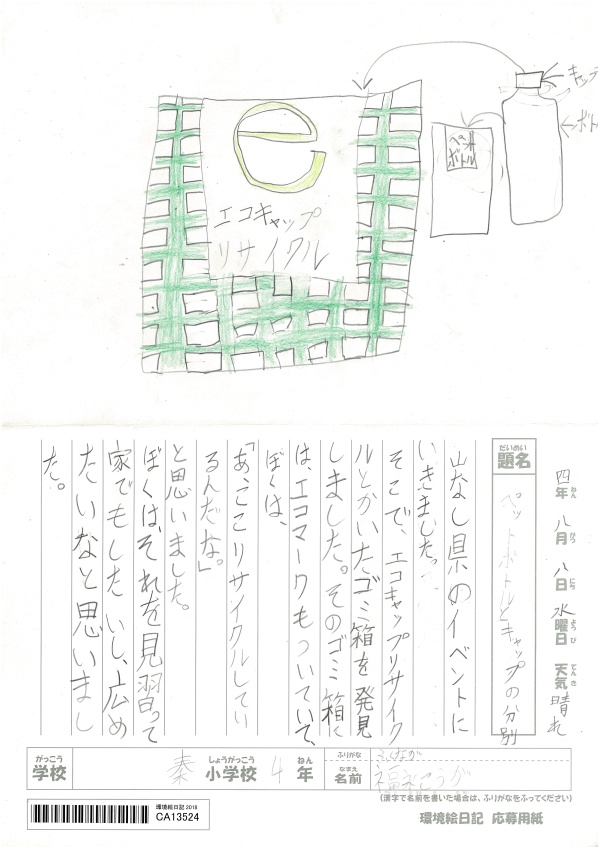 キャップ
ボトル
ペット
ボトル
e
エコキャップ
リサイクル
四年 八月 八日 水曜日 天気 晴れ
ねん がつ にち ようび てんき
だいめい
題名
ペットボトルとキャップの分別
山なし県のイベントに
いきました。
そこで、エコキャップリサイク
ルとかいたゴミ箱を発見
しました。そのゴミ箱に
は、エコマークもついていて、
ぼくは、
「あ、ここリサイクルしてい
るんだな。」
と思いました。
ぼくは、それを見習って
家でもしたいし、広め
たいなと思いまし
た。
がっこう
学校
秦
しょうがっこう
小学校
4
ねん
年
ふりがな
ふくなが
なまえ
名前
(漢字で名前を書いた場合は、ふりがなをふってください)
環境絵日記2018
CA13524
環境絵日記 応募用紙